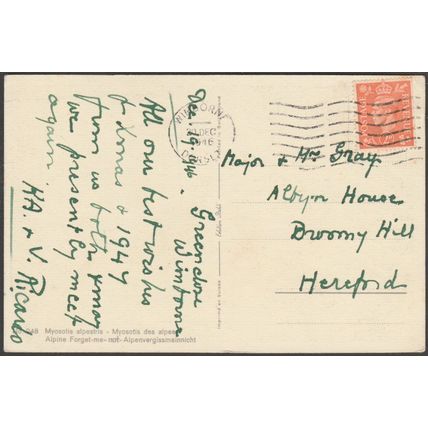 Dec. 19. 46.
Greenclose
Wimborne
All our best wishes
for Xmas & 1947
from us both & may
we presently meet
again.
H.A. & V. Ricardo
Major & Mrs Gray
Albyn House
Broomy Hill
Hereford
WIMBORNE
DEC
1946
DORSET
248 Myosotis alpestris - Myosotis des alpes
Alpine Forget-me-not - Alpenvergissmeinnicht
Imprimé en Suisse